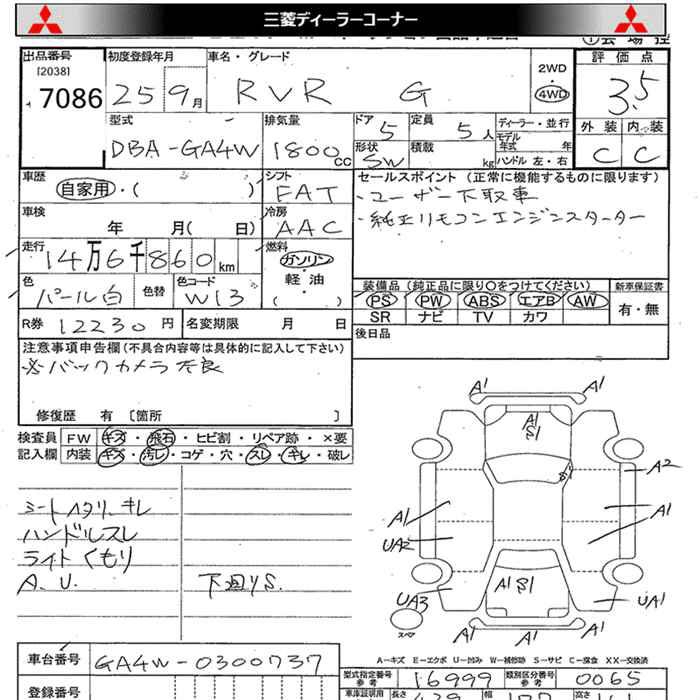 三菱ディーラーコーナー
出品番号
[2038]
7086
初度登録年月
25 9月
車名・グレード
RVR G
2WD
4WD
評価点
3.5
外装 内装
C C
型式
DBA-GA4W
排気量
1800cc
ドア 5
形状 SW
定員 5人
積載 kg
ディーラー・並行
モデル年式 年
ハンドル 左・右
車歴
自家用・( )
シフト
FAT
セールスポイント (正常に機能するものに限ります)
・ユーザー下取車
・純正リモコンエンジンスターター
車検
年 月( 日)
冷房
AAC
走行
14万6千860km
燃料
ガソリン
軽・油
( )
色
パール白
色替
色コード
W13
装備品 (純正品に限り〇をつけてください)
新車保証書
PS PW ABS エアB AW
SR ナビ TV カワ
有・無
R券 12230円
名変期限 月 日
後日品
注意事項申告欄(不具合内容等は具体的に記入して下さい)
※バックカメラ不良
修復歴 有 [箇所 ]
検査員 FW キズ・飛石・ヒビ割・リペア跡・×要
記入欄 内装 キズ・汚レ・コゲ・穴・スレ・キレ・破レ
シートヘタリ、キレ
ハンドルスレ
ライトくもり
A.U. 下廻りS.
A1 A1
A1
S1
S1
A2
A1 A1
UA2
A1 S1
UA3 UA1
スペア
A1 A1 A1
A-キズ E-エクボ U-凹み W-補修跡 S-サビ C-腐食 XX-交換済
車台番号
GA4W-0300737
型式指定番号 参考
16999
類別区分番号 参考
0065
登録番号
車庫証明用 参考
長さ
幅
高さ